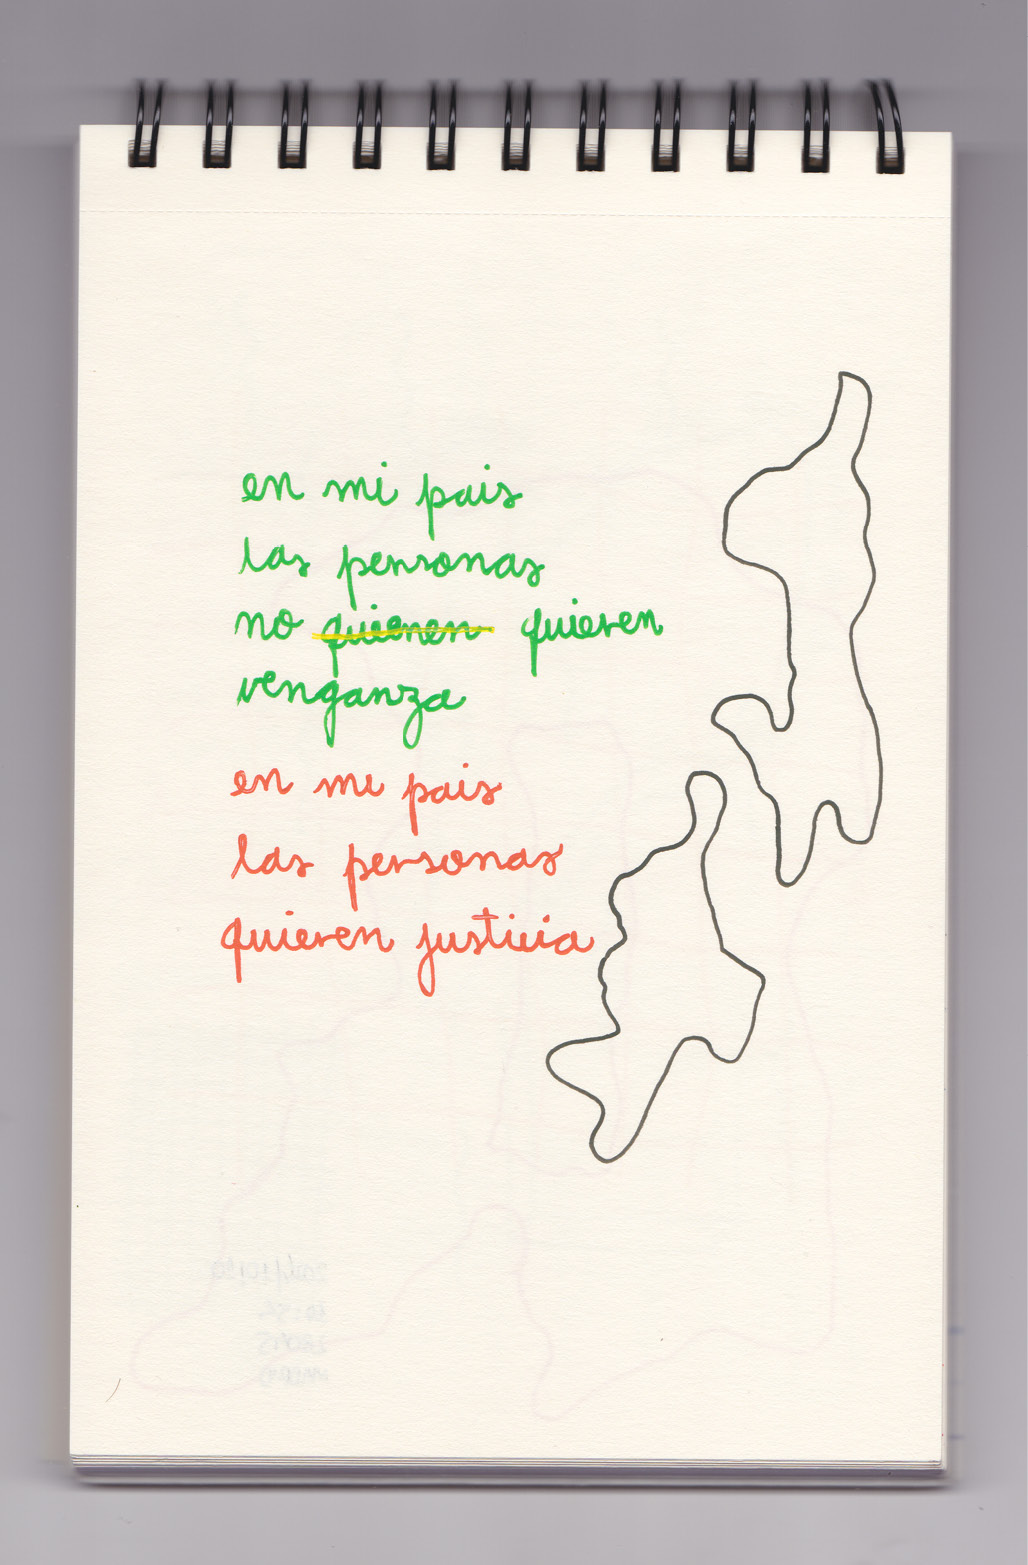 en mi pais
las personas
no quienen quieren
venganza
en mi pais
las personas
quieren justicia